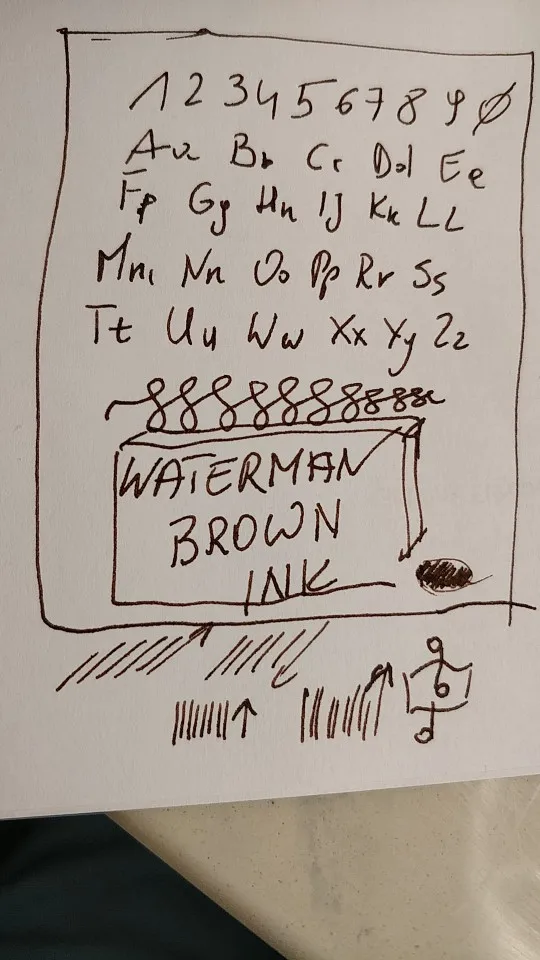 1 2 3 4 5 6 7 8 9 0
Aa Bb Cc Dd Ee
Ff Gg Hh IJ Kk LL
Mm Nn Oo Pp Rr Ss
Tt Uu Ww Xx Yy Zz
WATERMAN
BROWN
INK